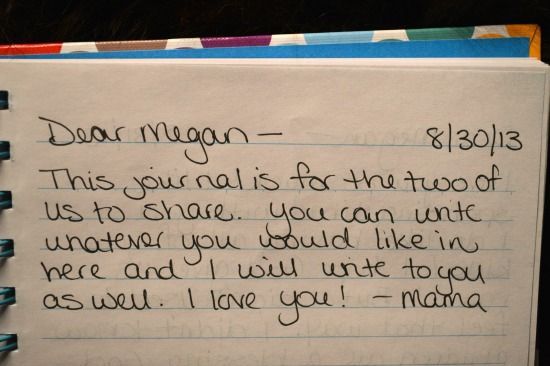 Dear Megan — 8/30/13
This journal is for the two of
us to share. You can write
whatever you would like in
here and I will write to you
as well. I love you! – mama